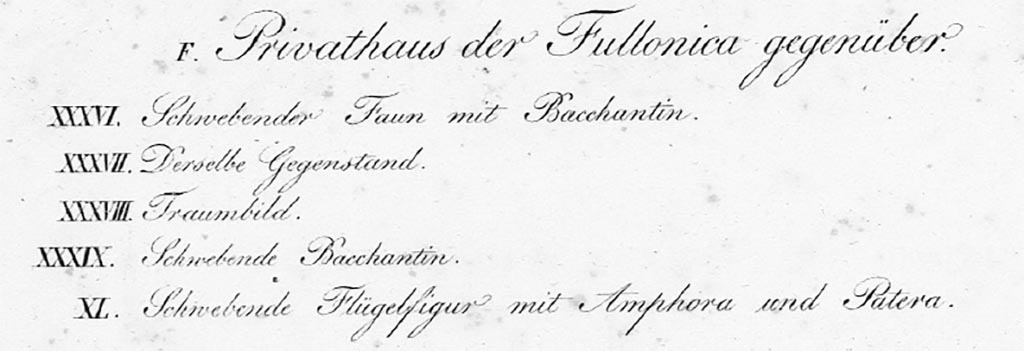 F. Privathaus der Fullonica gegenüber.
XXXVI. Schwebender Faun mit Bacchantin.
XXXVII. Derselbe Gegenstand.
XXXVIII. Traumbild.
XXXIX. Schwebende Bacchantin.
XL. Schwebende Flügelfigur mit Amphora und Patera.